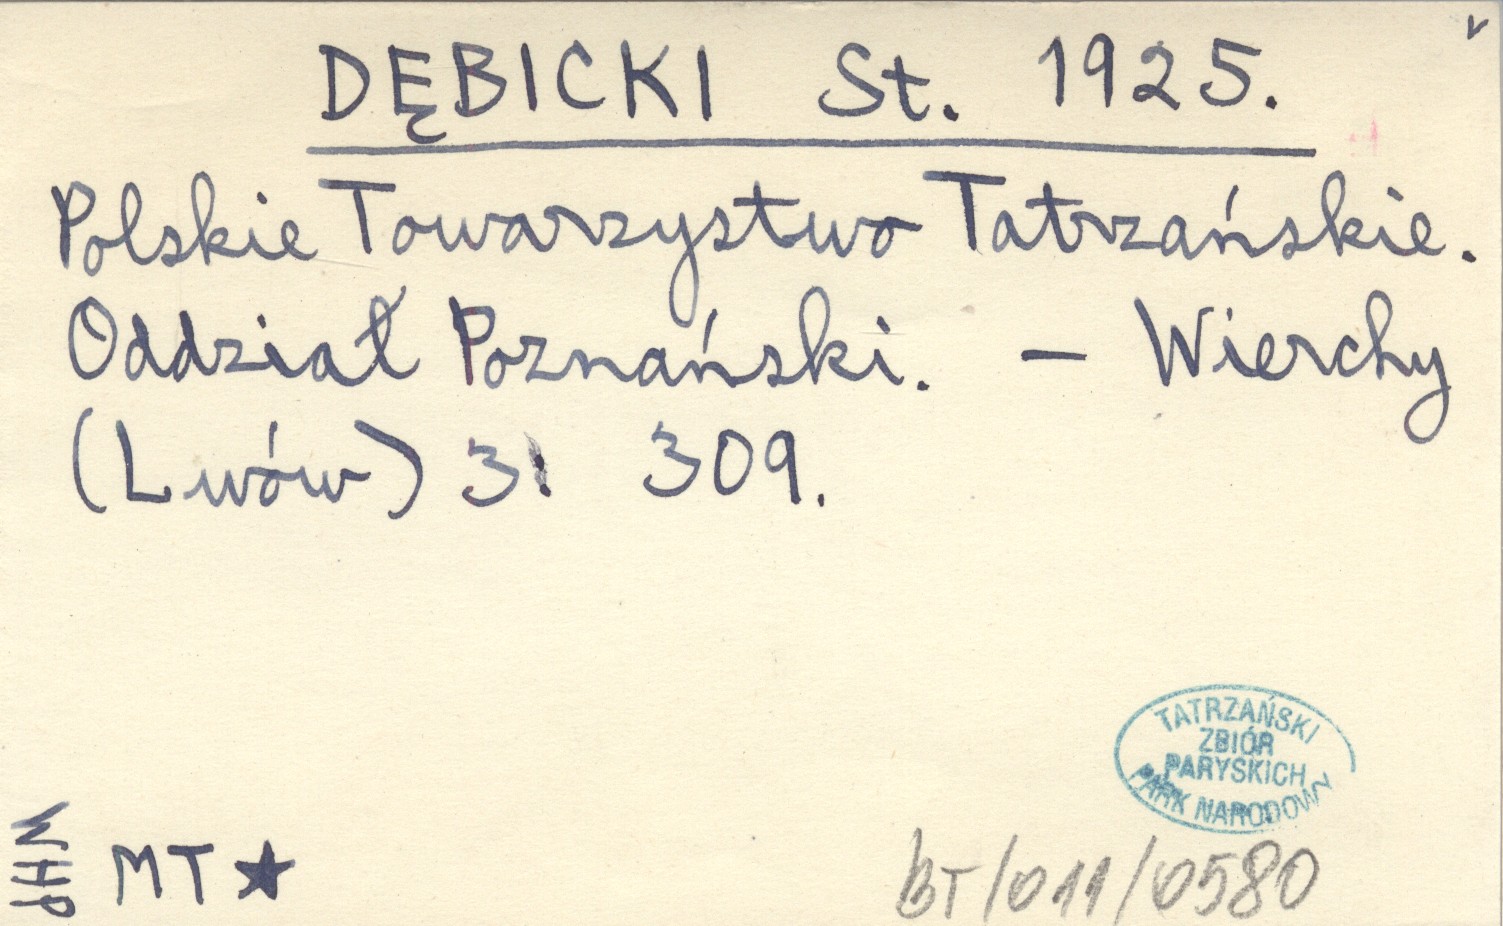 DĘBICKI St. 1925.
Polskie Towarzystwo Tatrzańskie.
Oddział Poznański. — Wierchy
(Lwów) 3: 309.
TATRZAŃSKI
ZBIÓR
PARYSKICH
PARK NARODOWY
WHP
MT ★
BT/011/0580